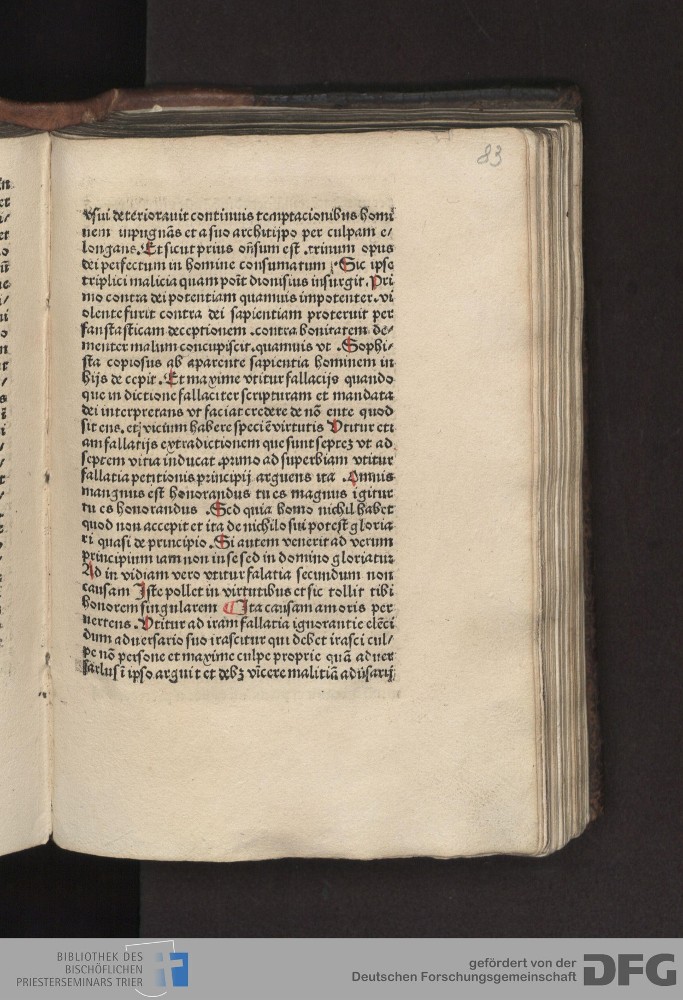 83
vsui deteriorauit continuis temptacionibus homi
nem inpugnās et a suo architipo per culpam e/
longans. Et sicut prius oñsum est .trinum opus
dei perfectum in homine consumatum ; Sic ipse
triplici malicia quam poīt dionisius insurgit. Pri
mo contra dei potentiam quamuis impotenter. vi
olente furit contra dei sapientiam proteruit per
fanstasticam deceptionem .contra bonitatem de/
menter malum concupiscit. quamuis vt . Sophi/
sta copiosus ab aparente sapientia hominem in
hijs de cepit . Et maxime vtitur fallacijs quando
que in dictione fallaciter scripturam et mandata
dei interpretans vt faciat credere de nō ente quod
sit ens. etꝫ vicium habere speciē virtutis Vtitur eti
am fallatijs extradictionem que sunt septeꝫ vt ad
septem vitia inducat .primo ad superbiam vtitur
fallatia petitionis principij arguens ita . Omnis
mangnus est honorandus tu es magnus igitur
tu es honorandus . Sed quia homo nichil habet
quod non accepit et ita de nichilo sui potest gloria
ri quasi de principio . Si autem venerit ad verum
principium iam non in se sed in domino gloriatur
Ad in vidiam vero vtitur falatia secundum non
causam Iste pollet in virtutibus et sic tollit tibi
honorem singularem ¶ Ita causam amoris per
uertens . Vtitur ad iram fallatia ignorantie elēci
dum aduersario suo irascitur qui debet irasci cul/
pe nō persone et maxime culpe proprie quā aduer
sarius ī ipso arguit et debꝫ vīcere malitiā aduſarij
BIBLIOTHEK DES
BISCHÖFLICHEN
PRIESTERSEMINARS TRIER
gefördert von der
Deutschen Forschungsgemeinschaft
DFG